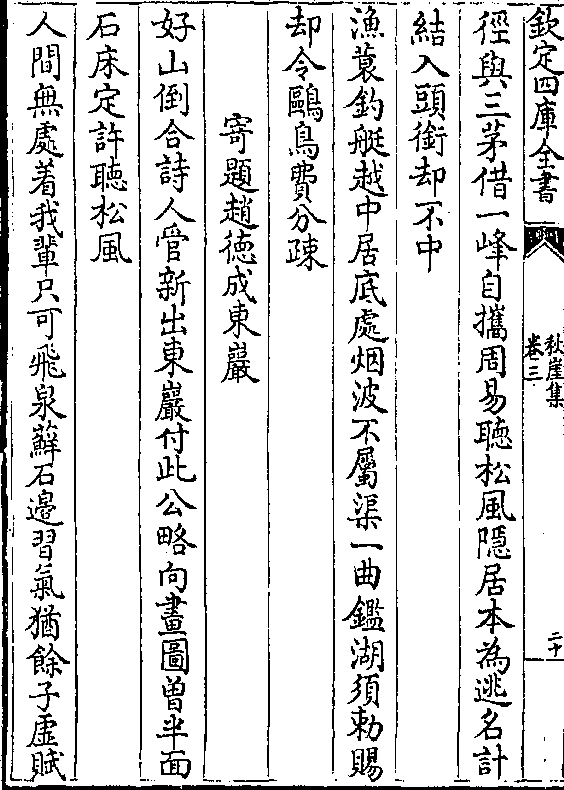 欽定四庫全書
秋崖集
卷三
二十
徑與三茅借一峰自攜周易聽松風隠居本為逃名計
結入頭銜却不中
漁蓑釣艇越中居底處烟波不屬渠一曲鑑湖須勅賜
却令鷗鳥費分疎
寄題趙徳成東巖
好山倒合詩人管新出東巖付此公略向畫圖曽半面
石床定許聽松風
人間無處着我輩只可飛泉蘚石邉習氣猶餘子虛賦